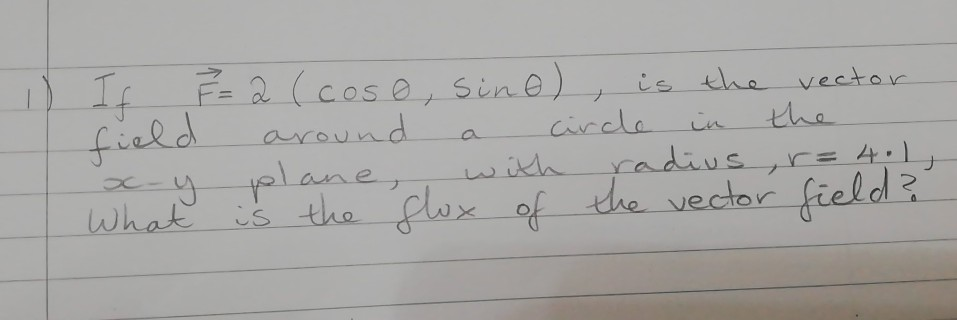 1) If F⃗ = 2 (cosθ, sinθ), is the vector
field around a circle in the
x-y plane, with radius, r = 4·1,
What is the flux of the vector field?